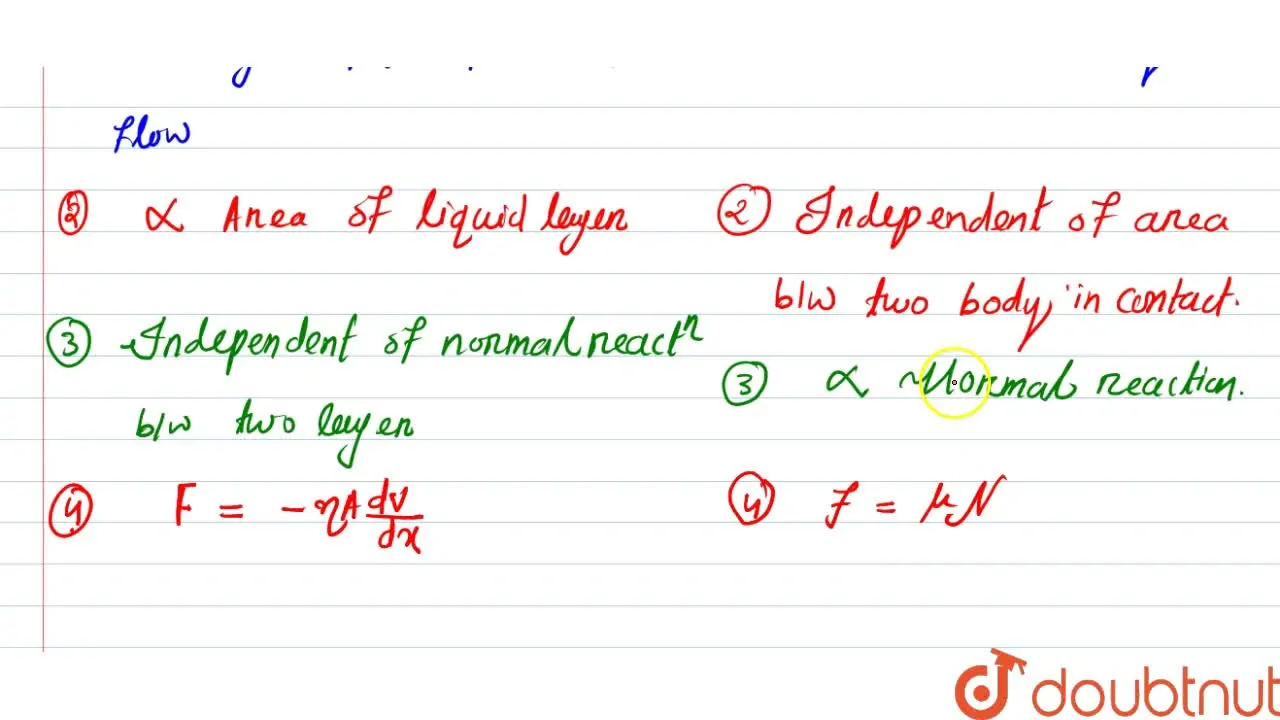 Flow
② ∝ Area of liquid leyer
③ Independent of normal reactⁿ
b/w two leyer
④ F = -ηA dv/dx
② Independent of area
b/w two body, in contact.
③ ∝ Normal reaction.
④ f = μN
doubtnut